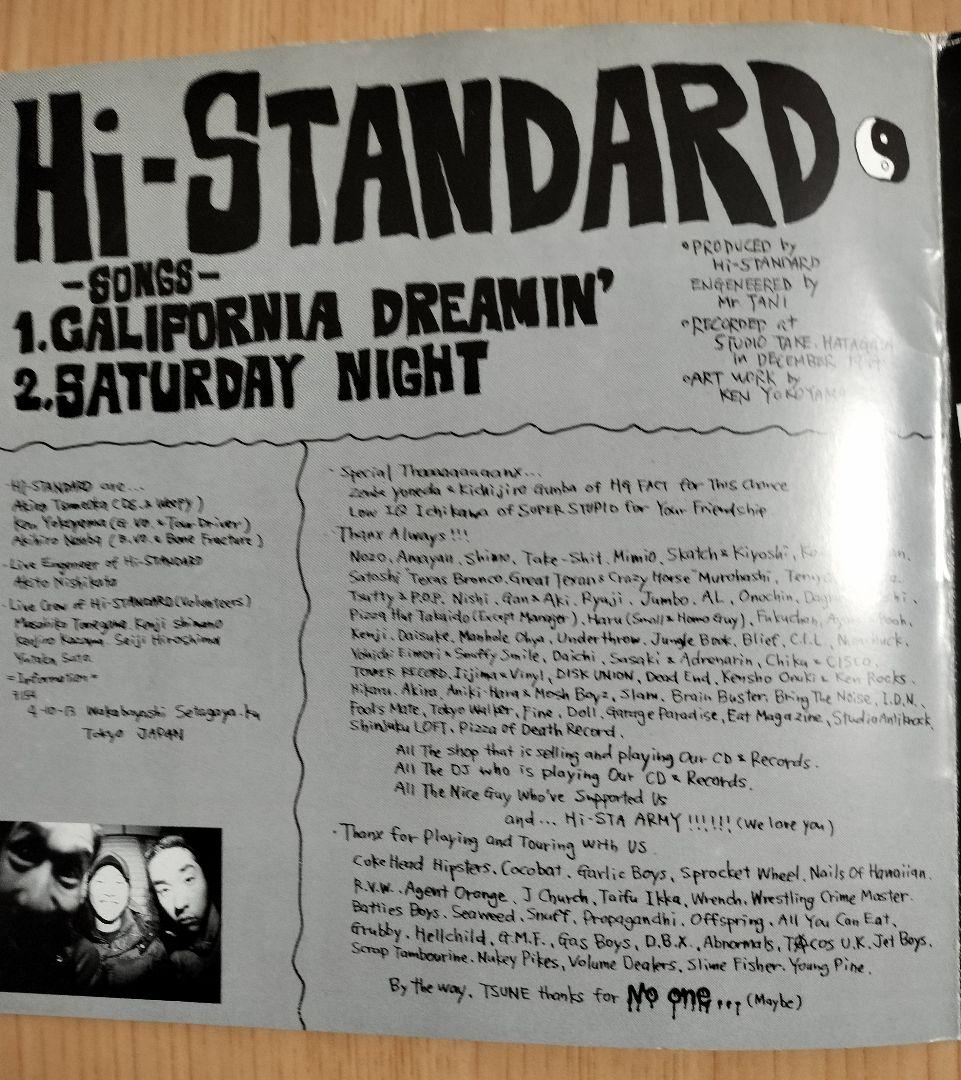 Hi-STANDARD
-SONGS-
1.CALIFORNIA DREAMIN'
2.SATURDAY NIGHT
•PRODUCED by
Hi-STANDARD
ENGENEERED by
Mr TANI
•RECORDED at
STUDIO TAKE. HATAGAYA
in DECEMBER
•ART WORK by
KEN YOKOYAMA
·Hi-STANDARD are...
Akira Tsuneoka (DS. & Weepy)
Ken Yokoyama (G. VO. & Tour Driver)
Akihiro Nanba (B. VO. & Bone Fracture)
·Live Engeneer of Hi-STANDARD
Akito Nishikata
·Live Crew of Hi-STANDARD (Volunteers)
Masahiko Tanegawa Kenji Shimano
Kenjiro Kazama. Seiji Hiroshima
Yutaka Sato.
=Information=
〒154
4-10-13 Wakabayashi Setagaya-ku
Tokyo JAPAN
·Special Thaaaaqaaaanx...
Yoneda & Kichijiro Gunba of HG FACT for This Chance
Low IQ Ichikawa of SUPER STUPID for Your Friendship
·Thanx Always!!!
Nozo, Amayan, Shimo, Take-Shit, Mimio, Skatch & Kiyoshi,
Satoshi "Texas Bronco, Great Texan & Crazy Horse" Murohashi,
Tsutty & P.O.P. Nishi, Gan & Aki, Ryuji, Jumbo, AL, Onochin,
Pizza Hut Takaido (Except Manager), Haru (Small & Homo Guy), Fukuchan,
Kenji, Daisuke, Manhole Ohya, Underthrow, Jungle Book, Blief, C.I.L,
Yohichi Eimori & Snuffy Smile, Daichi, Sasaki & Adrenarin, Chiku & CISCO.
TOWER RECORD, Iijima & Vinyl, DISK UNION, Dead End, Kensho Onuki & Ken Rocks.
Hikaru, Akira, Aniki-Hara & Mosh Boyz, Slam, Brain Buster, Bring The Noise, I.D.N.,
Fool's Mate, Tokyo Walker, Fine, Doll, Garage Paradise, Eat Magazine, Studio Antiknock,
Shinjuku LOFT, Pizza of Death Record.
All The Shop that is selling and playing Our CD & Records.
All The DJ who is playing Our CD & Records.
All The Nice Guy Who've Supported Us
and... Hi-STA ARMY!!!!!! (We love you)
·Thanx for Playing and Touring with US
Coke Head Hipsters, Cocobat, Garlic Boys, Sprocket Wheel, Nails Of Hawaiian,
R.V.W, Agent Orange, J Church, Taifu Ikka, Wrench, Wrestling Crime Master,
Batties Boys, Seaweed, Snuff, Propagandhi, Offspring, All You Can Eat,
Grubby, Hellchild, G.M.F., Gas Boys, D.B.X, Abnormals, TACOS U.K, Jet Boys,
Scrap Tambourine, Nukey Pikes, Volume Dealers, Slime Fisher, Young Pine.
By the way, TSUNE thanks for No one... (Maybe)